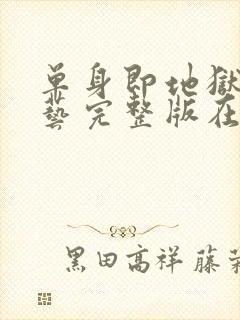 單身即地獄
藝完整版在
黑田高祥 藤